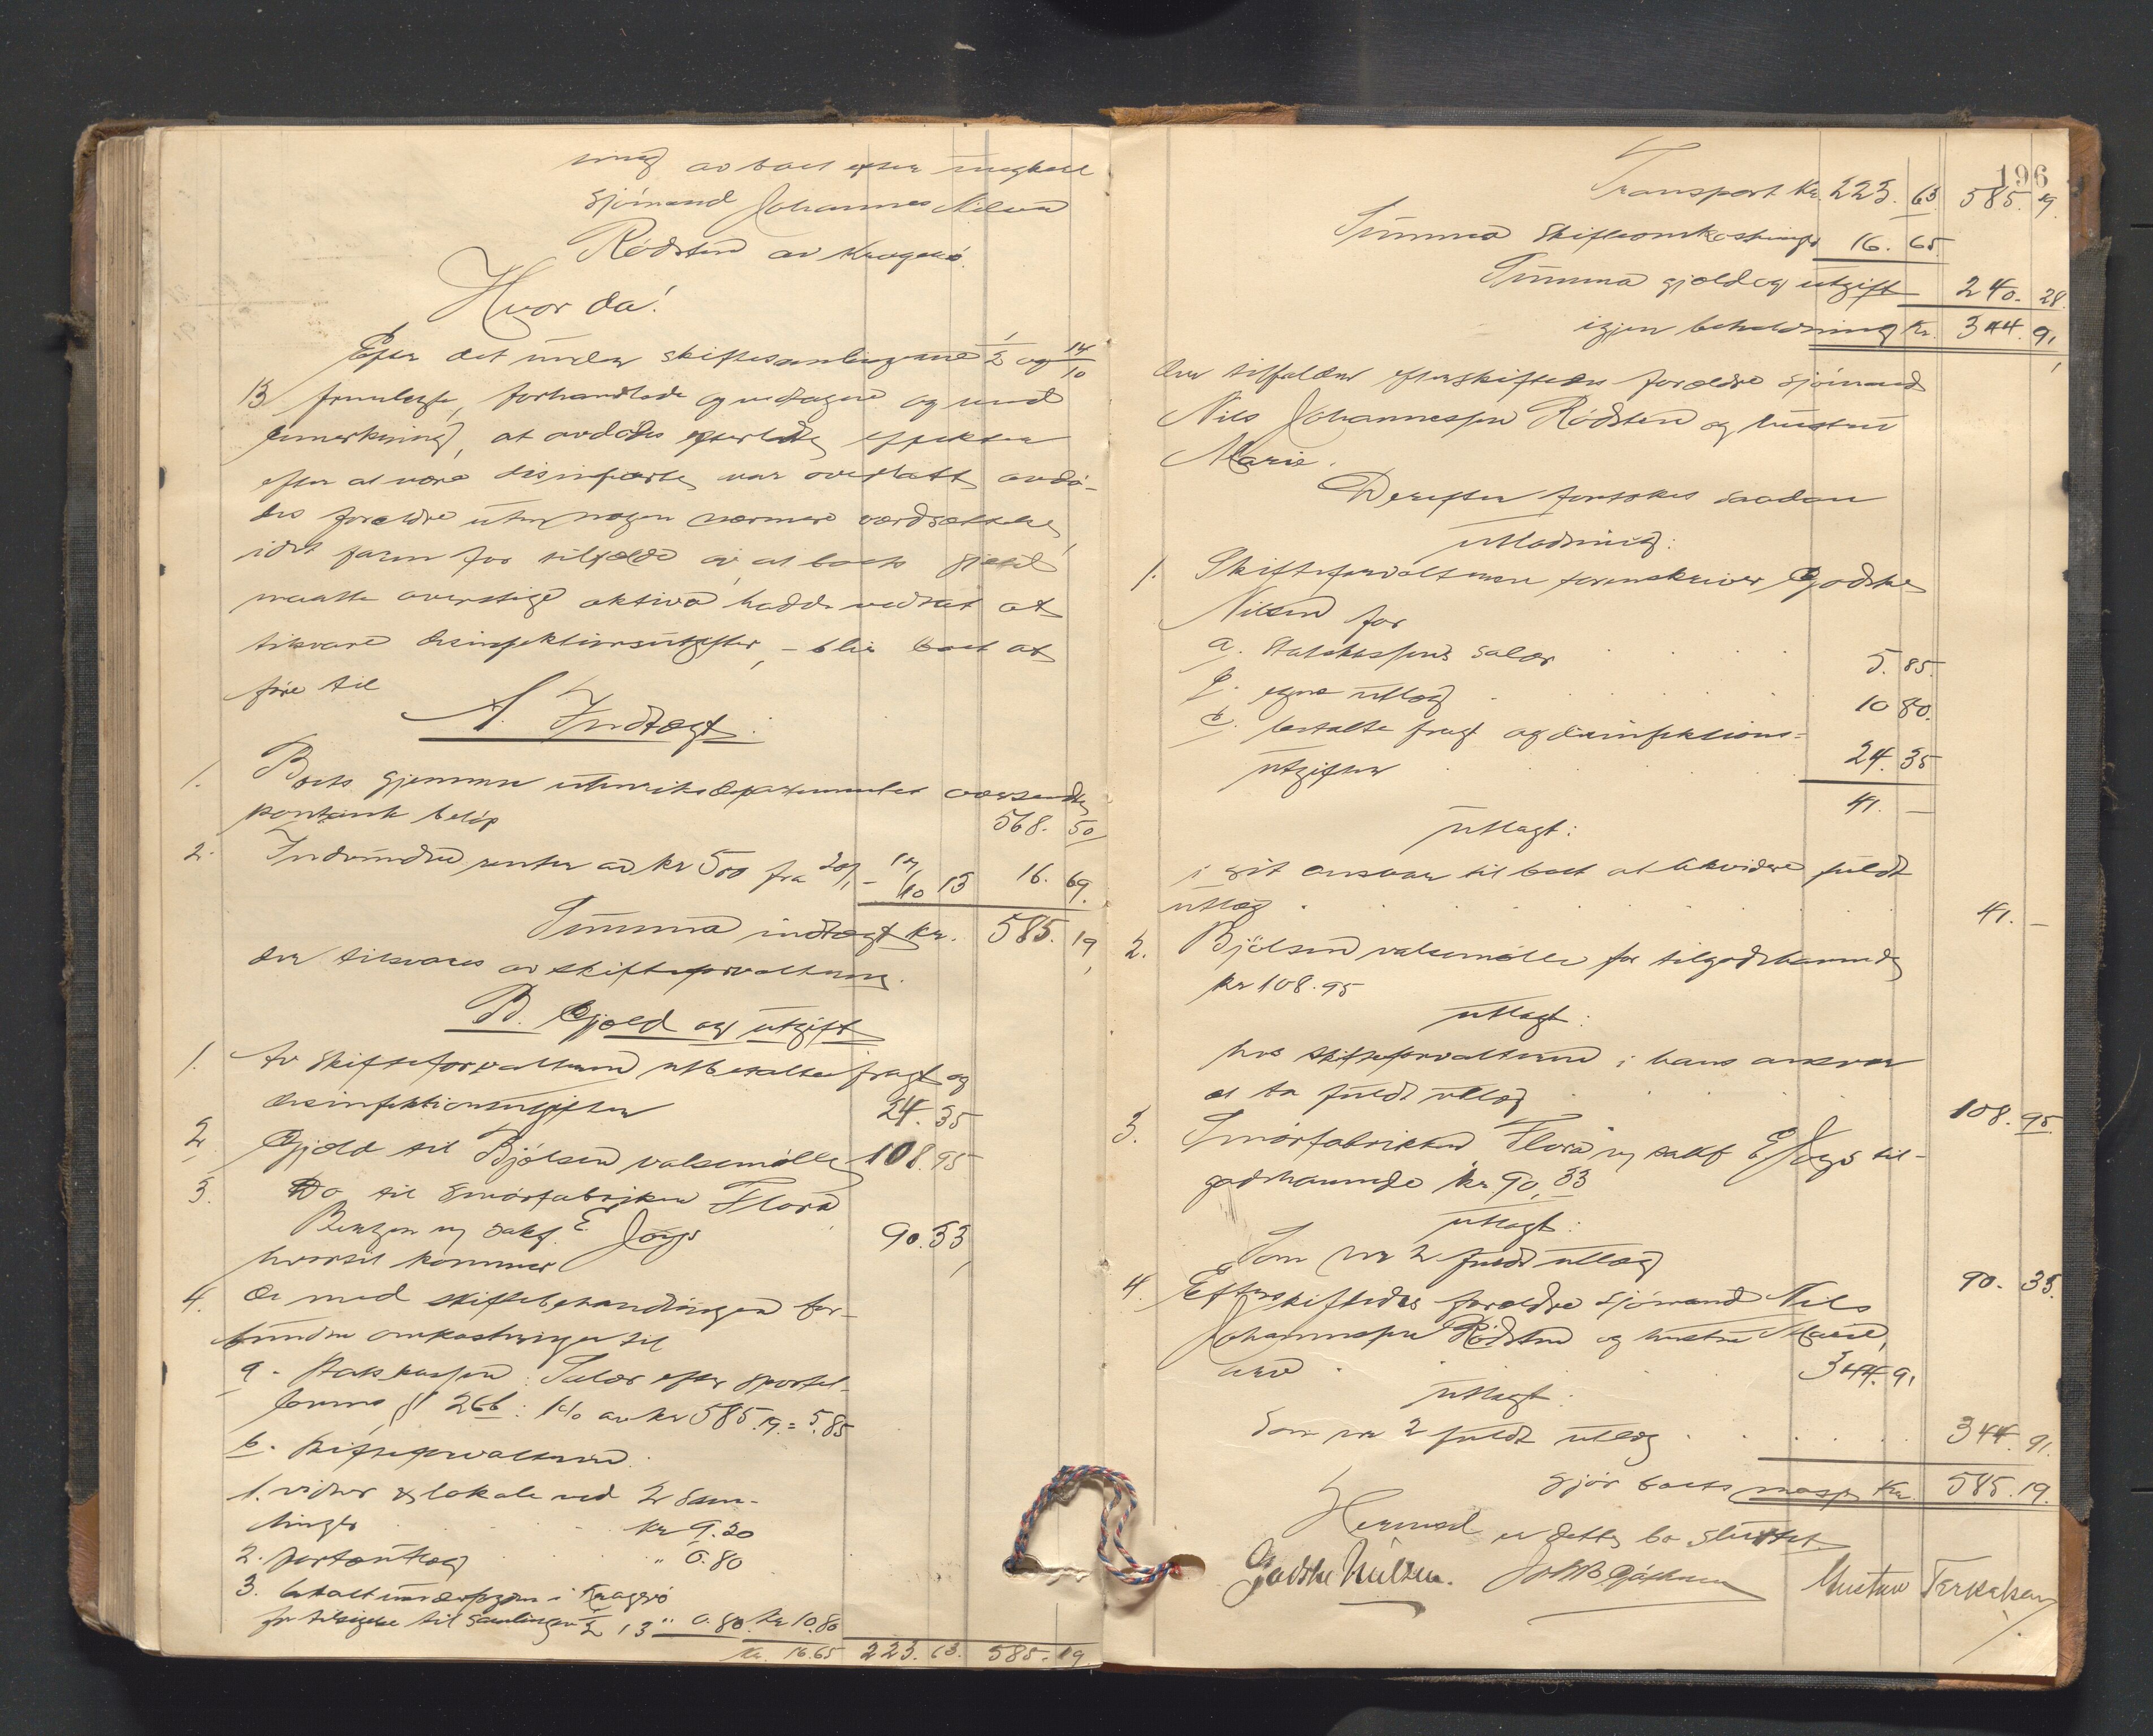 ning av boet efter
sjømand Johannes Nilsen
Rødsten av Kragerø.
Hvor da!
Efter det under skiftesamlingerne 1/2 og 14/10
13 fremlagte, forhandlede og vedtagne og med
bemerkning, at avdødes efterladte effekter
efter at være desinficerte var overlatt avdø-
des forældre uten nogen nærmere værdsættelse,
idet faren for tilfælde av at boets gjæld
maatte overstige aktiva hadde vedtat at
tilsvare desinfektionsutgifter, - blir boet at
føre til
A. Indtægt:
1. Boets gjennem utenriksdepartementet oversendte
kontante beløp 568. 50
2. Indvundne renter av kr 500 fra 20/1 - 14/10 13 16. 69.
Summa indtægt kr. 585. 19,
der tilsvares av skifteforvalteren.
B. Gjæld og utgift
1. Av skifteforvalteren utbetalte fragt og
desinfektionsutgifter 24. 35
2. Gjæld til Bjølsen valsemølle 108. 95
3. Do til smørfabrikken Flora,
ved sakf. E
hvortil kommer 90. 33,
4. De med skiftebehandlingen for-
bundne omkostninger til
a. Statskassen: Salær efter sportel-
lovens § 26b: 1% av kr 585.19. = 5.85
b. Skifteforvalteren:
1. vidner & lokale ved 2 sam-
linger kr 9.20
2. portoutlæg " 0.80
3. betalt i Kragerø
for tilsigelse til samlingen 1/2 13 " 0.80. kr 10.80
Kr. 16.65 223. 63. 585. 19
196
Transport kr. 223. 63. 585. 19.
Summa skifteomkostninger 16. 65.
Summa gjæld og utgift 240. 28.
igjen beholdning kr. 344. 91,
der tilfalder efterskiftedes forældre sjømand
Nils Johannessen Rødsten og hustru
Marie.
Derefter foretokes saadan
utlodning:
1. Skifteforvalteren sorenskriver Godske
Nilsen for
a. statskassens salær 5. 85.
b. egne utlæg 10 80.
c. betalte fragt og desinfektions=
utgifter 24. 35
41. -
utlagt:
i sit ansvar til boet at likvidere fuldt
utlæg 41. -
2. Bjølsen valsemølle for tilgodehavende
kr 108. 95
utlagt:
hos skifteforvalteren i hans ansvar
at ta fuldt utlæg 108. 95.
3. Smørfabrikken "Flora" ved sakf E til-
godehavende kr 90, 33
utlagt:
Som nr 2 fuldt utlæg 90. 33.
4. Efterskiftedes forældre sjømand Nils
Johannessen Rødsten og hustru Marie,
arv 344. 91
utlagt:
Som nr 2 fuldt utlæg 344. 91.
gjør boets masse kr. 585. 19.
Hermed er dette bo sluttet.
Godske Nielsen. Gustav Terkelsen